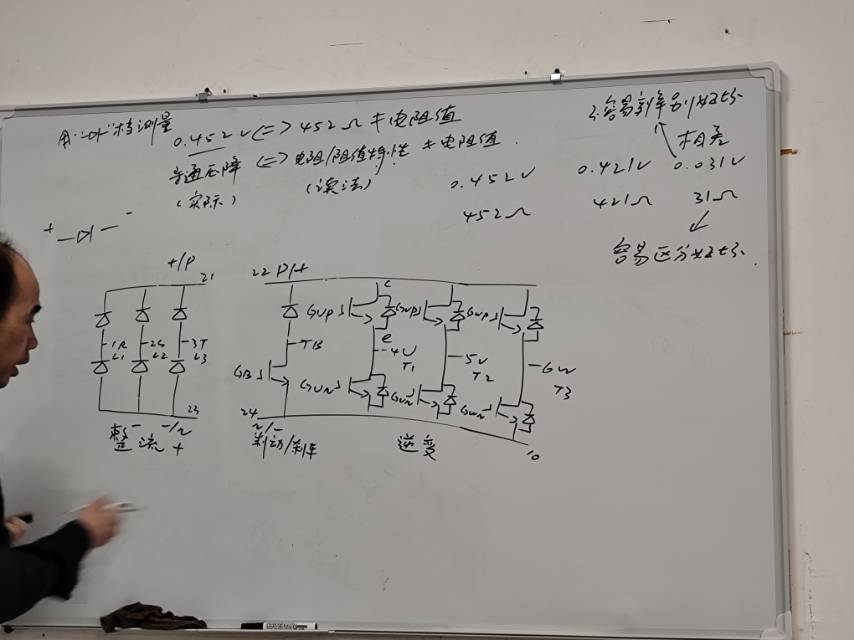 用"二极"档测量 0.452V <=> 452Ω ≠ 电阻值
导通压降 <=> 电阻/阻值特性 ≠ 电阻值
(实际) (误法)
不容易判别好坏
相差
0.452V 0.421V 0.031V
452Ω 421Ω 31Ω
容易区分好坏
+ -
+/P 21
22 P/+
c
GUP
e
1R 2S 3T
L1 L2 L3
TB
4U T1
5V T2
6W T3
GB
GUN
23
24
-/N
N/-
+
整流
制动/刹车
逆变
10